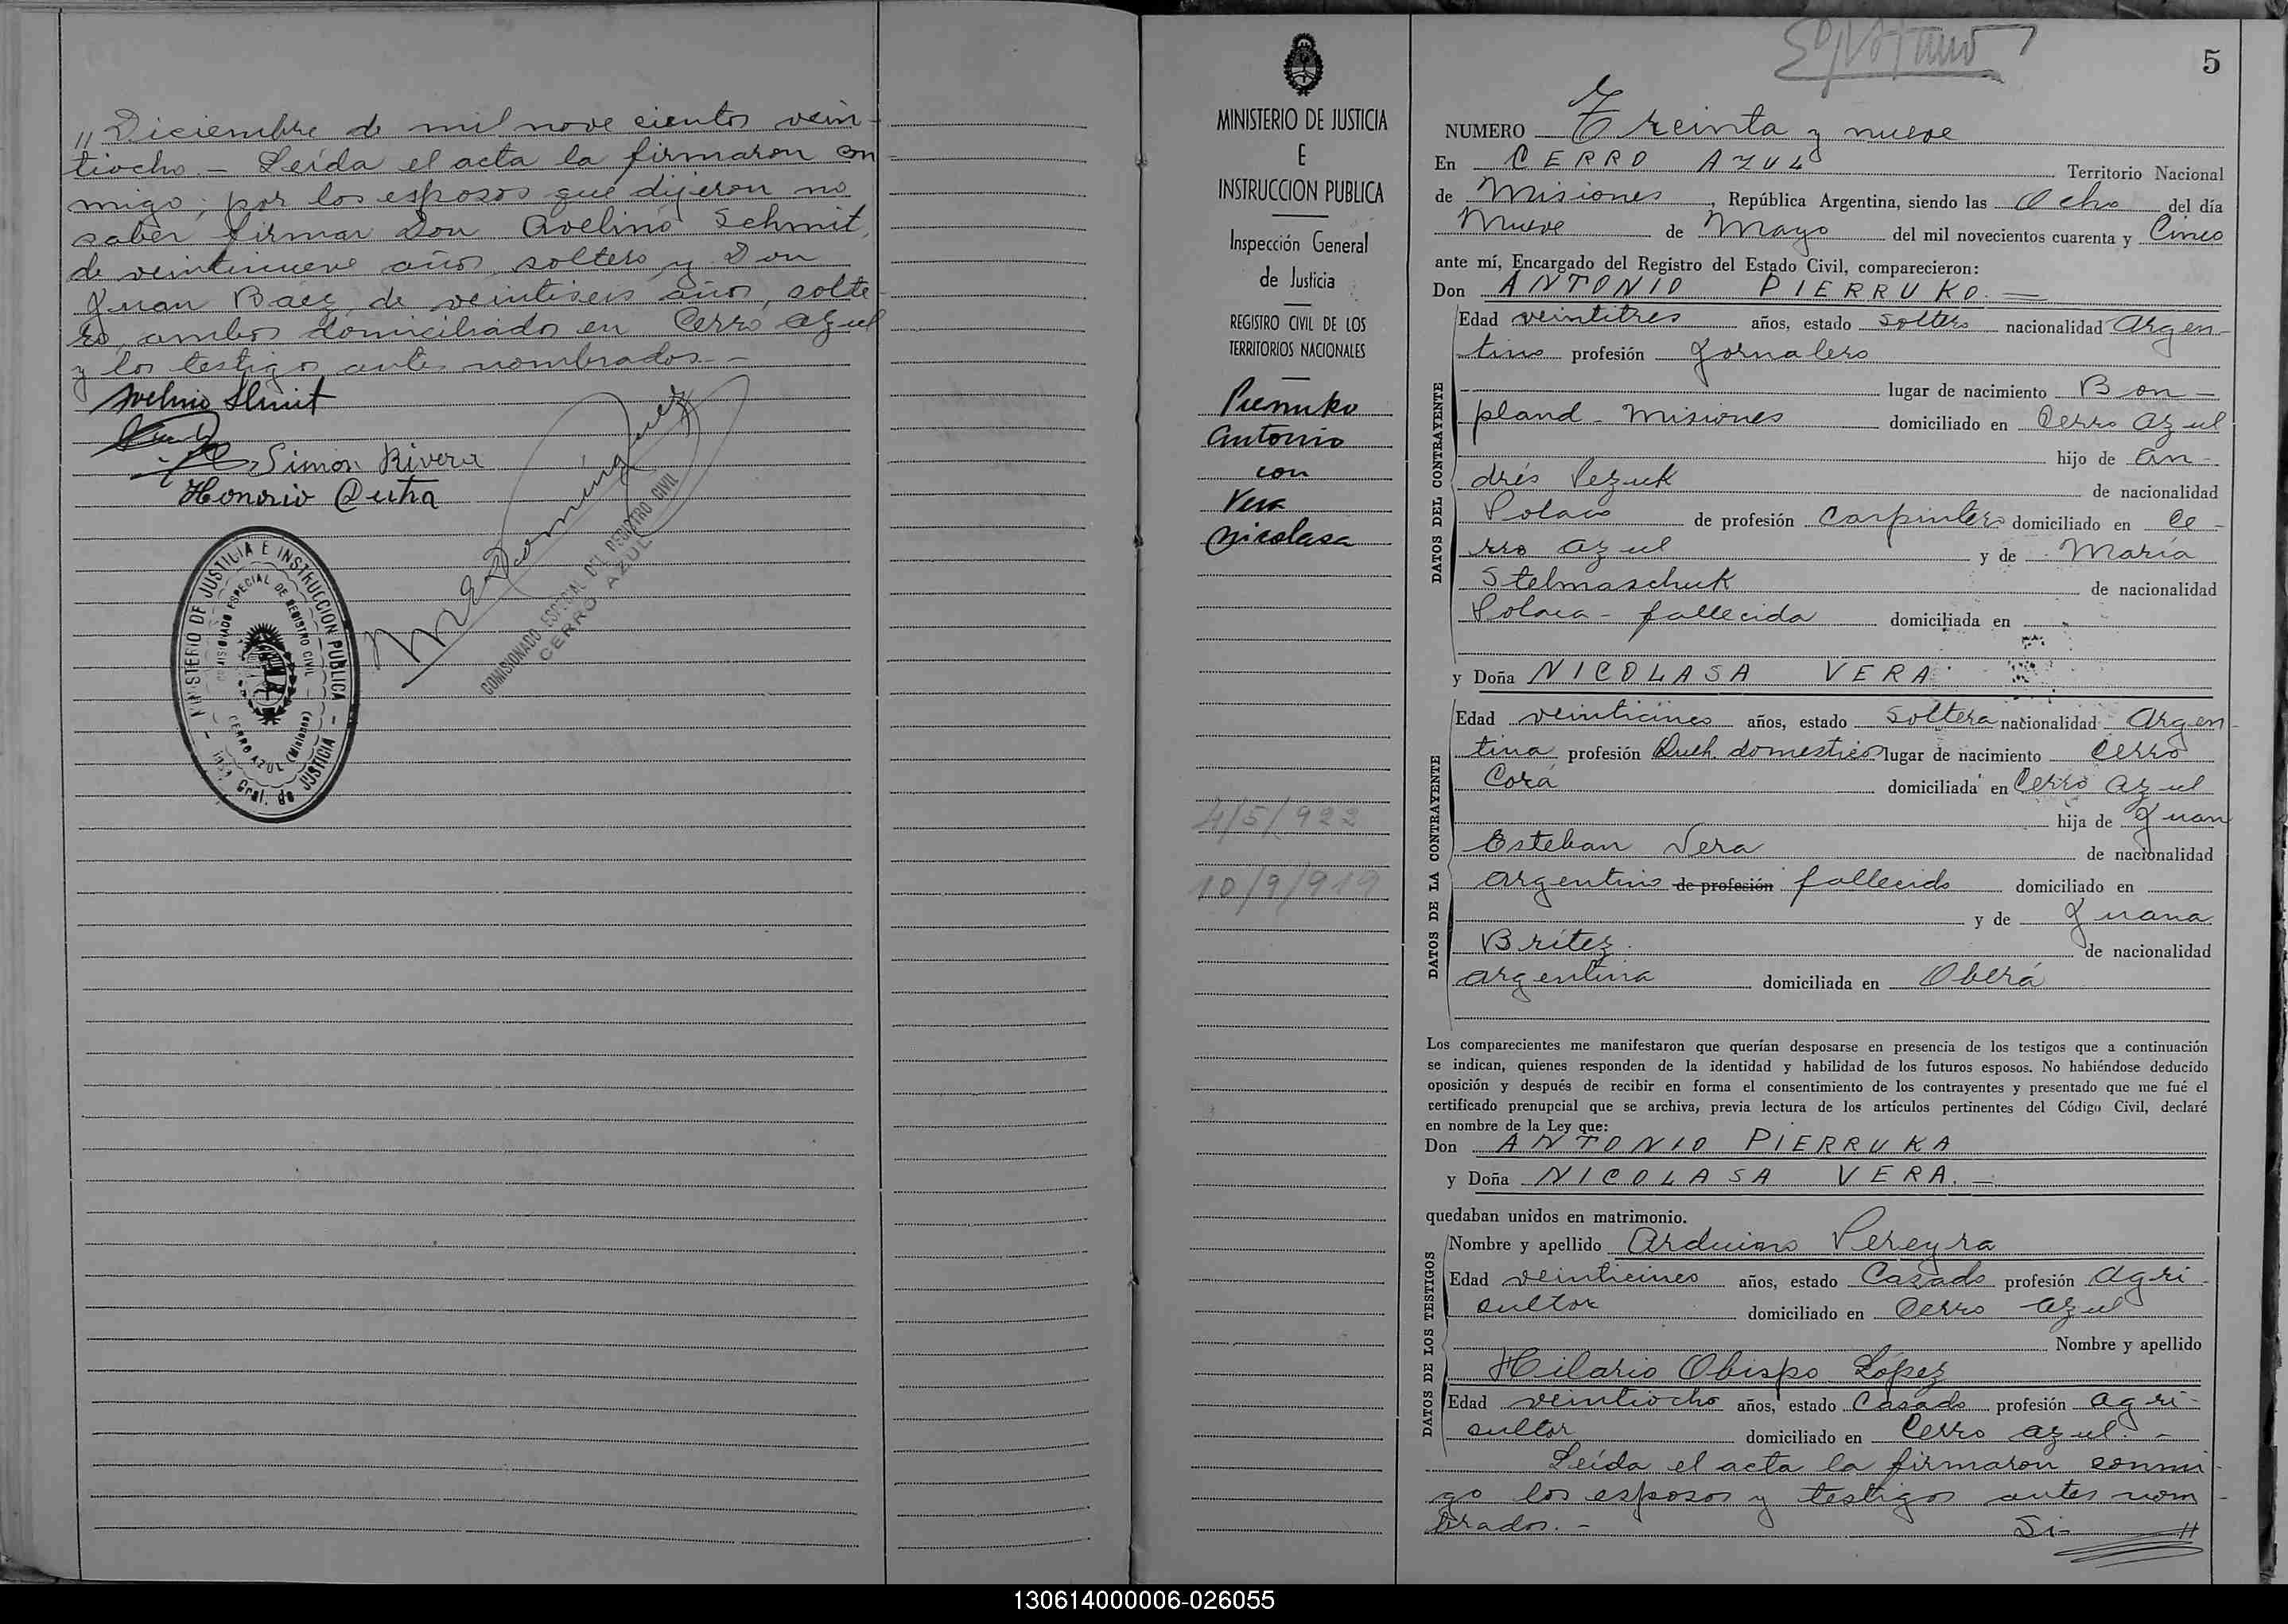 " Diciembre de mil nove cientos vein-
tiocho.- Leída el acta la firmaron con
migo; por los esposos que dijeron no
saber firmar Don Avelino Schmit,
de veintinueve años, soltero y Don
Juan Baez, de veintiseis años, solte
ro, ambos domiciliados en Cerro Azul
y los testigos antes nombrados.-
Simón Rivera
MINISTERIO DE JUSTICIA E INSTRUCCION PUBLICA
COMISIONADO ESPECIAL DE REGISTRO CIVIL
CERRO AZUL (Misiones)
Gral. de JUSTICIA
COMISIONADO ESPECIAL DEL REGISTRO CIVIL
CERRO AZUL
MINISTERIO DE JUSTICIA
E
INSTRUCCION PUBLICA
Inspección General
de Justicia
REGISTRO CIVIL DE LOS
TERRITORIOS NACIONALES
Pierruko
Antonio
con
Vera
Nicolasa
4/5/922
10/9/919
5
NUMERO Treinta y nueve
En CERRO AZUL Territorio Nacional
de Misiones, República Argentina, siendo las Ocho del día
Nueve de Mayo del mil novecientos cuarenta y Cinco
ante mí, Encargado del Registro del Estado Civil, comparecieron:
Don ANTONIO PIERRUKO.-
DATOS DEL CONTRAYENTE
Edad veintitres años, estado soltero nacionalidad Argen-
tino profesión Jornalero
lugar de nacimiento Bon-
pland - Misiones domiciliado en Cerro Azul
hijo de An-
drés Pezuk de nacionalidad
Polaco de profesión Carpintero domiciliado en Ce-
rro Azul y de María
Stelmaschuk de nacionalidad
Polaca - fallecida domiciliada en
y Doña NICOLASA VERA
DATOS DE LA CONTRAYENTE
Edad veinticinco años, estado Soltera nacionalidad Argen-
tina profesión Queh. domestico lugar de nacimiento Cerro
Corá domiciliada en Cerro Azul
hija de Juan
Esteban Vera de nacionalidad
argentino de profesión fallecido domiciliado en
y de Juana
Britez de nacionalidad
argentina domiciliada en Oberá
Los comparecientes me manifestaron que querían desposarse en presencia de los testigos que a continuación
se indican, quienes responden de la identidad y habilidad de los futuros esposos. No habiéndose deducido
oposición y después de recibir en forma el consentimiento de los contrayentes y presentado que me fué el
certificado prenupcial que se archiva, previa lectura de los artículos pertinentes del Código Civil, declaré
en nombre de la Ley que:
Don ANTONIO PIERRUKA
y Doña NICOLASA VERA.-
quedaban unidos en matrimonio.
DATOS DE LOS TESTIGOS
Nombre y apellido Arduino Pereyra
Edad veinticinco años, estado Casado profesión Agri-
cultor domiciliado en Cerro Azul
Nombre y apellido
Hilario Obispo López
Edad veintiocho años, estado Casado profesión agri-
cultor domiciliado en Cerro Azul.-
Leída el acta la firmaron conmi-
go los esposos y testigos antes nom-
brados.- Si- "
130614000006-026055